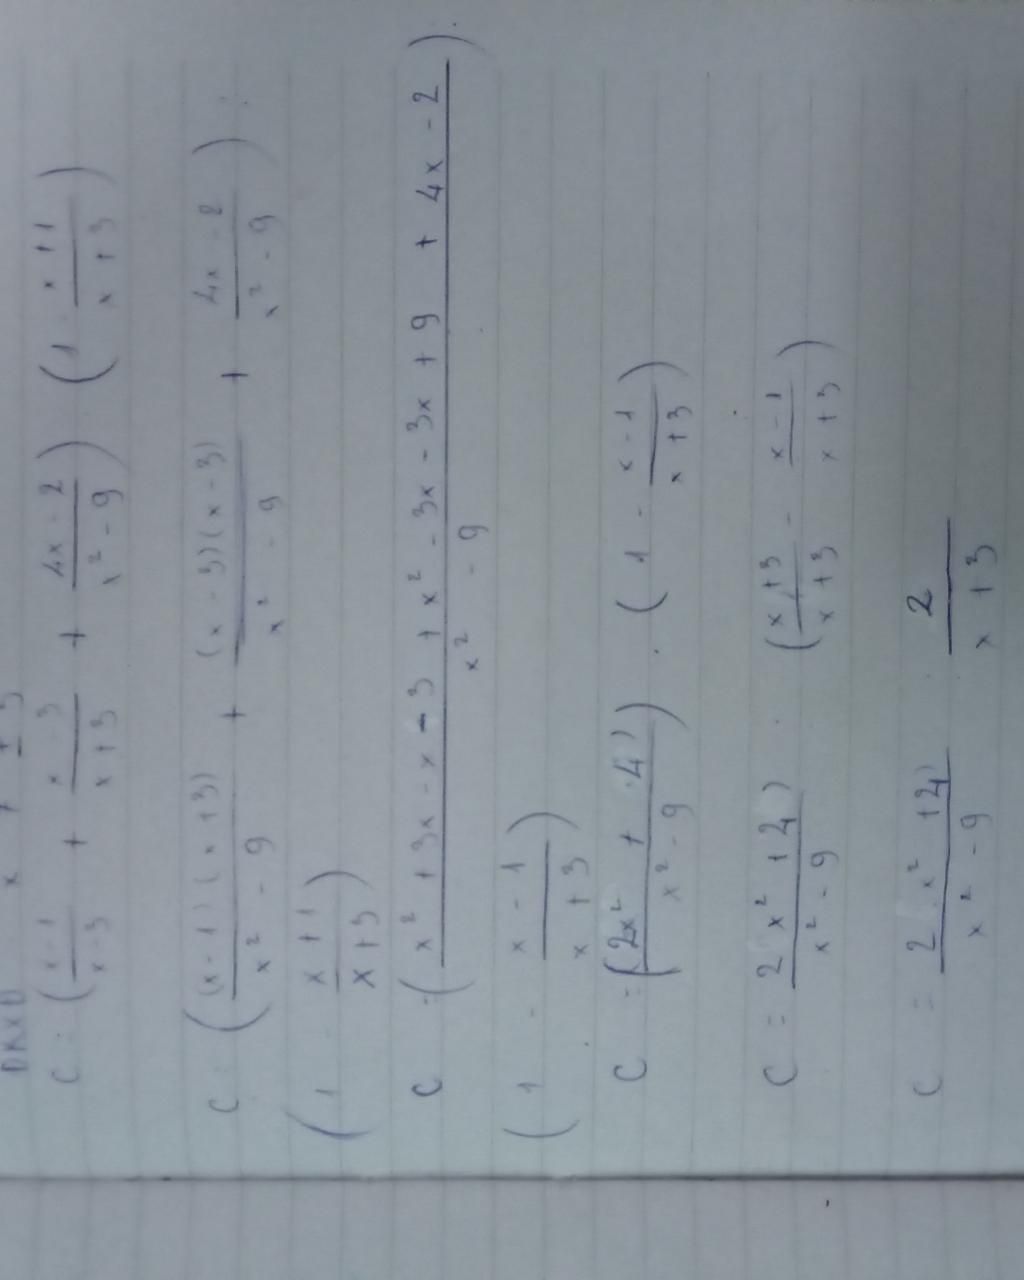 ĐKXĐ x ≠ ± 3
C = (x - 1 / x - 3 + x - 3 / x + 3 + 4x - 2 / x² - 9) (1 - x + 1 / x + 3)
C = ((x - 1)(x + 3) / x² - 9 + (x - 3)(x - 3) / x² - 9 + 4x - 2 / x² - 9) .
(1 - x + 1 / x + 3)
C = (x² + 3x - x - 3 + x² - 3x - 3x + 9 + 4x - 2 / x² - 9) .
(1 - x - 1 / x + 3)
C = (2x² + 4 / x² - 9) . (1 - x - 1 / x + 3)
C = 2x² + 4 / x² - 9 . (x + 3 / x + 3 - x - 1 / x + 3)
C = 2x² + 4 / x² - 9 . 2 / x + 3